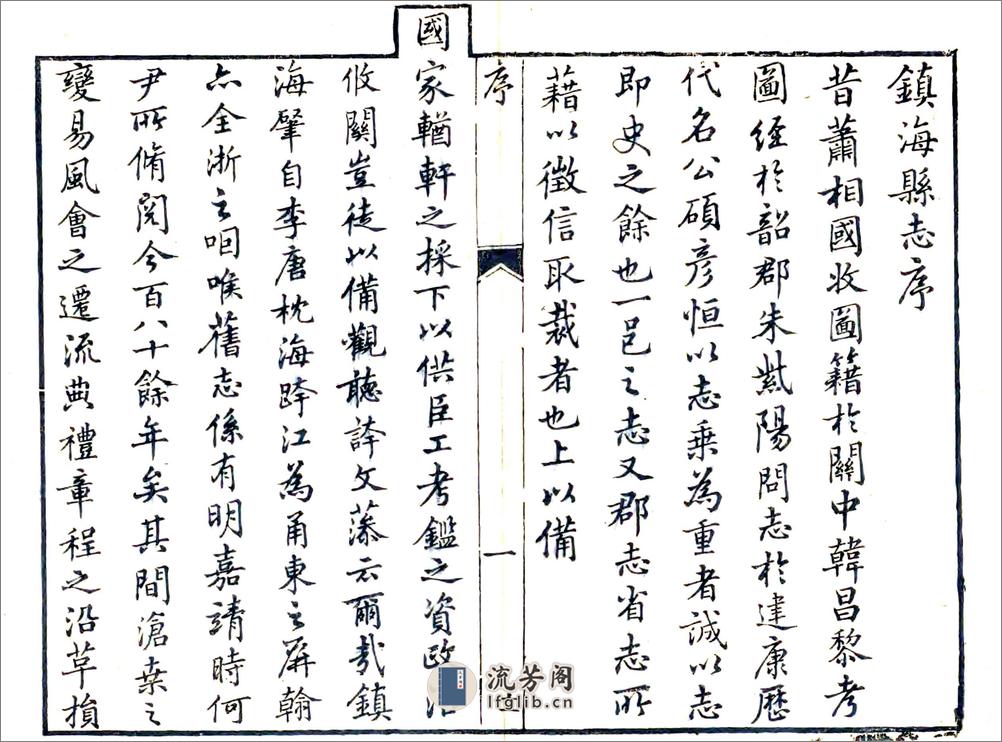 鎮海縣志序
昔蕭相國收圖籍於關中韓昌黎考
圖經於韶郡朱紫陽問志於建康歷
代名公碩彥恒以志乗為重者誠以志
即史之餘也一邑之志又郡志省志所
藉以徵信取裁者也上以備
序
一
國家輶軒之採下以供臣工考鑑之資政治
攸關豈徒以備觀聴誇文藻云爾哉鎮
海肇自李唐枕海跨江為甬東之屏翰
亦全浙之咽喉舊志係有明嘉靖時何
尹所脩閱今百八十餘年矣其間滄桑之
變易風會之遷流典禮章程之沿革損
流芳阁
lfglib.cn